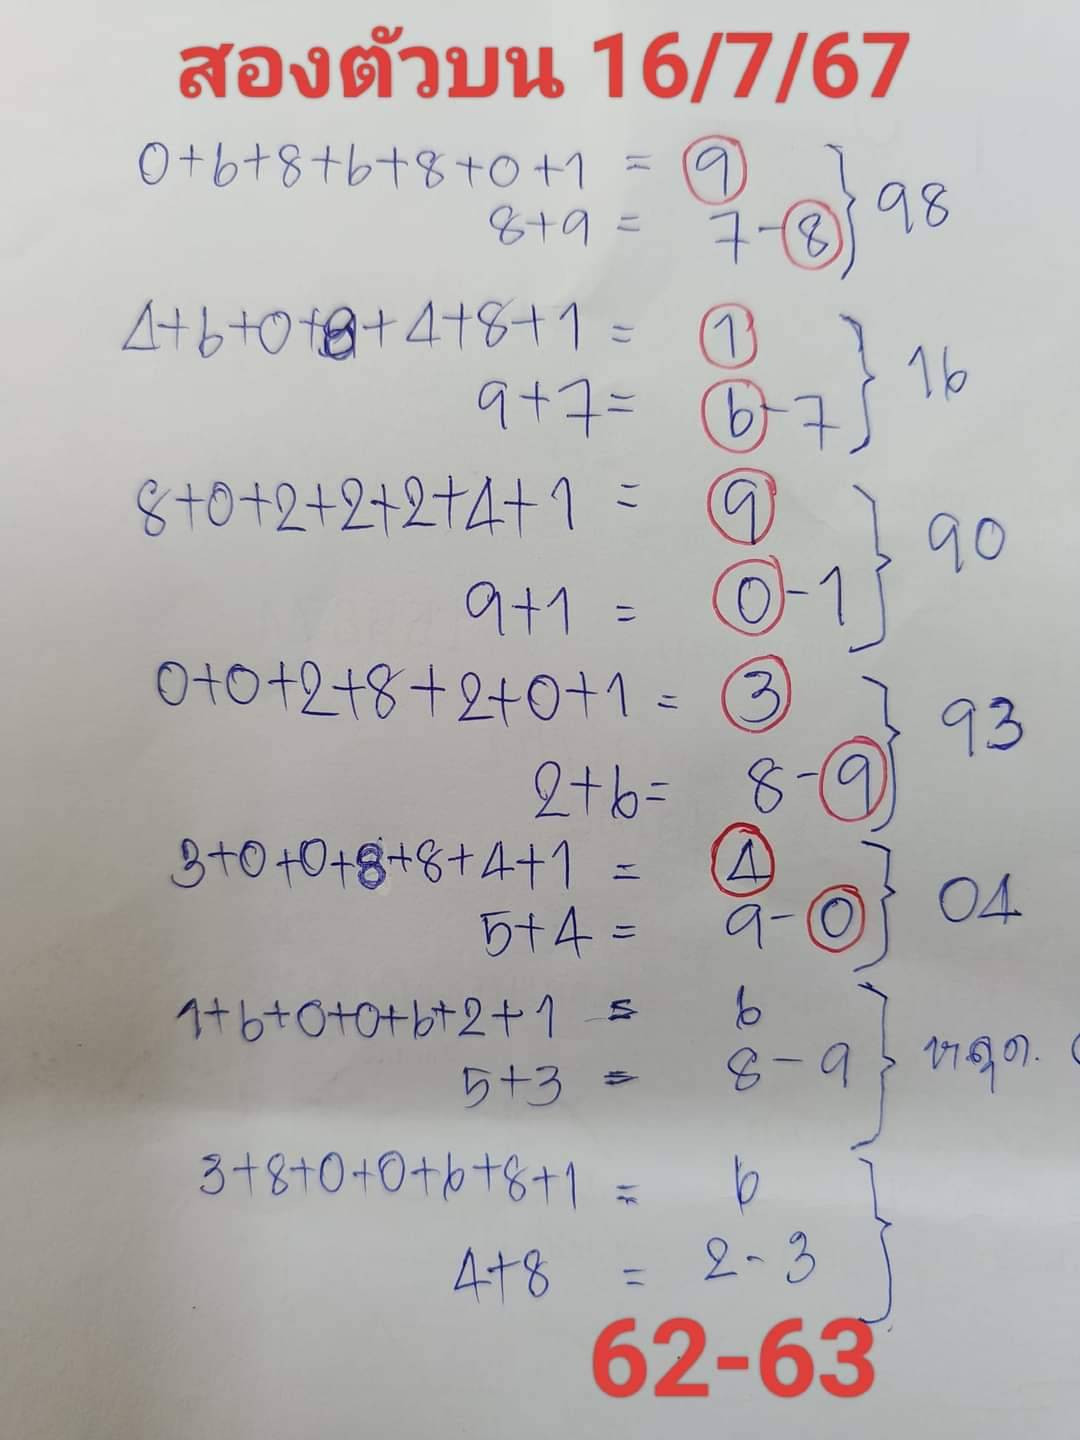 สองตัวบน 16/7/67
0+6+8+6+8+0+1 = 9
8+9 = 7-8
98
4+6+0+8+4+8+1 = 1
9+7= 6-7
16
8+0+2+2+2+4+1 = 9
9+1 = 0-1
90
0+0+2+8+2+0+1 = 3
2+6= 8-9
93
3+0+0+8+8+4+1 = 4
5+4 = 9-0
04
1+6+0+0+6+2+1 = 6
5+3 = 8-9
หลุด.
3+8+0+0+6+8+1 = 6
4+8 = 2-3
62-63